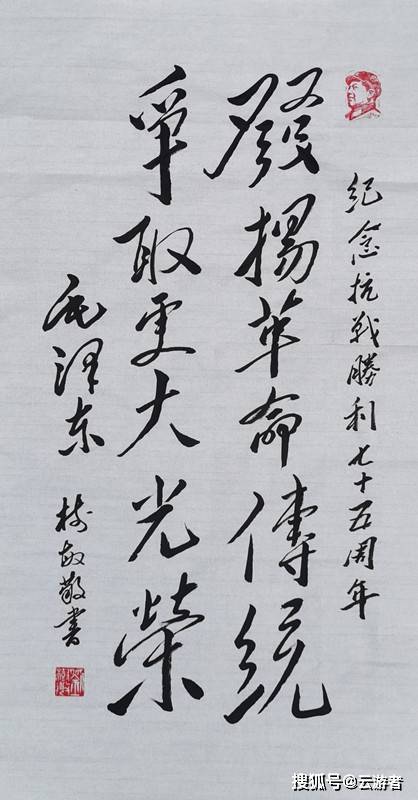 纪念抗战勝利七十五周年
發揚革命傳统
争取更大光榮
毛泽东
敬書
搜狐号@云游者